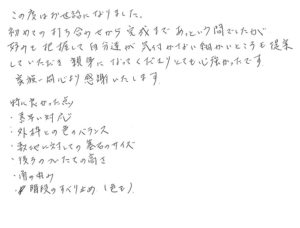 この度はお世話になりました。
初めての打ち合わせから完成まであっという間でしたが
好みも把握して自分達が気付かない細かいところも提案
していただき親身になってくださりとても心強かったです。
家族一同心より感謝いたします。
特に良かった点
・素早い対応
・外柵との色のバランス
・敷地に対しての墓石のサイズ
・後ろの
の高さ
・階段のすべり止め(色も)